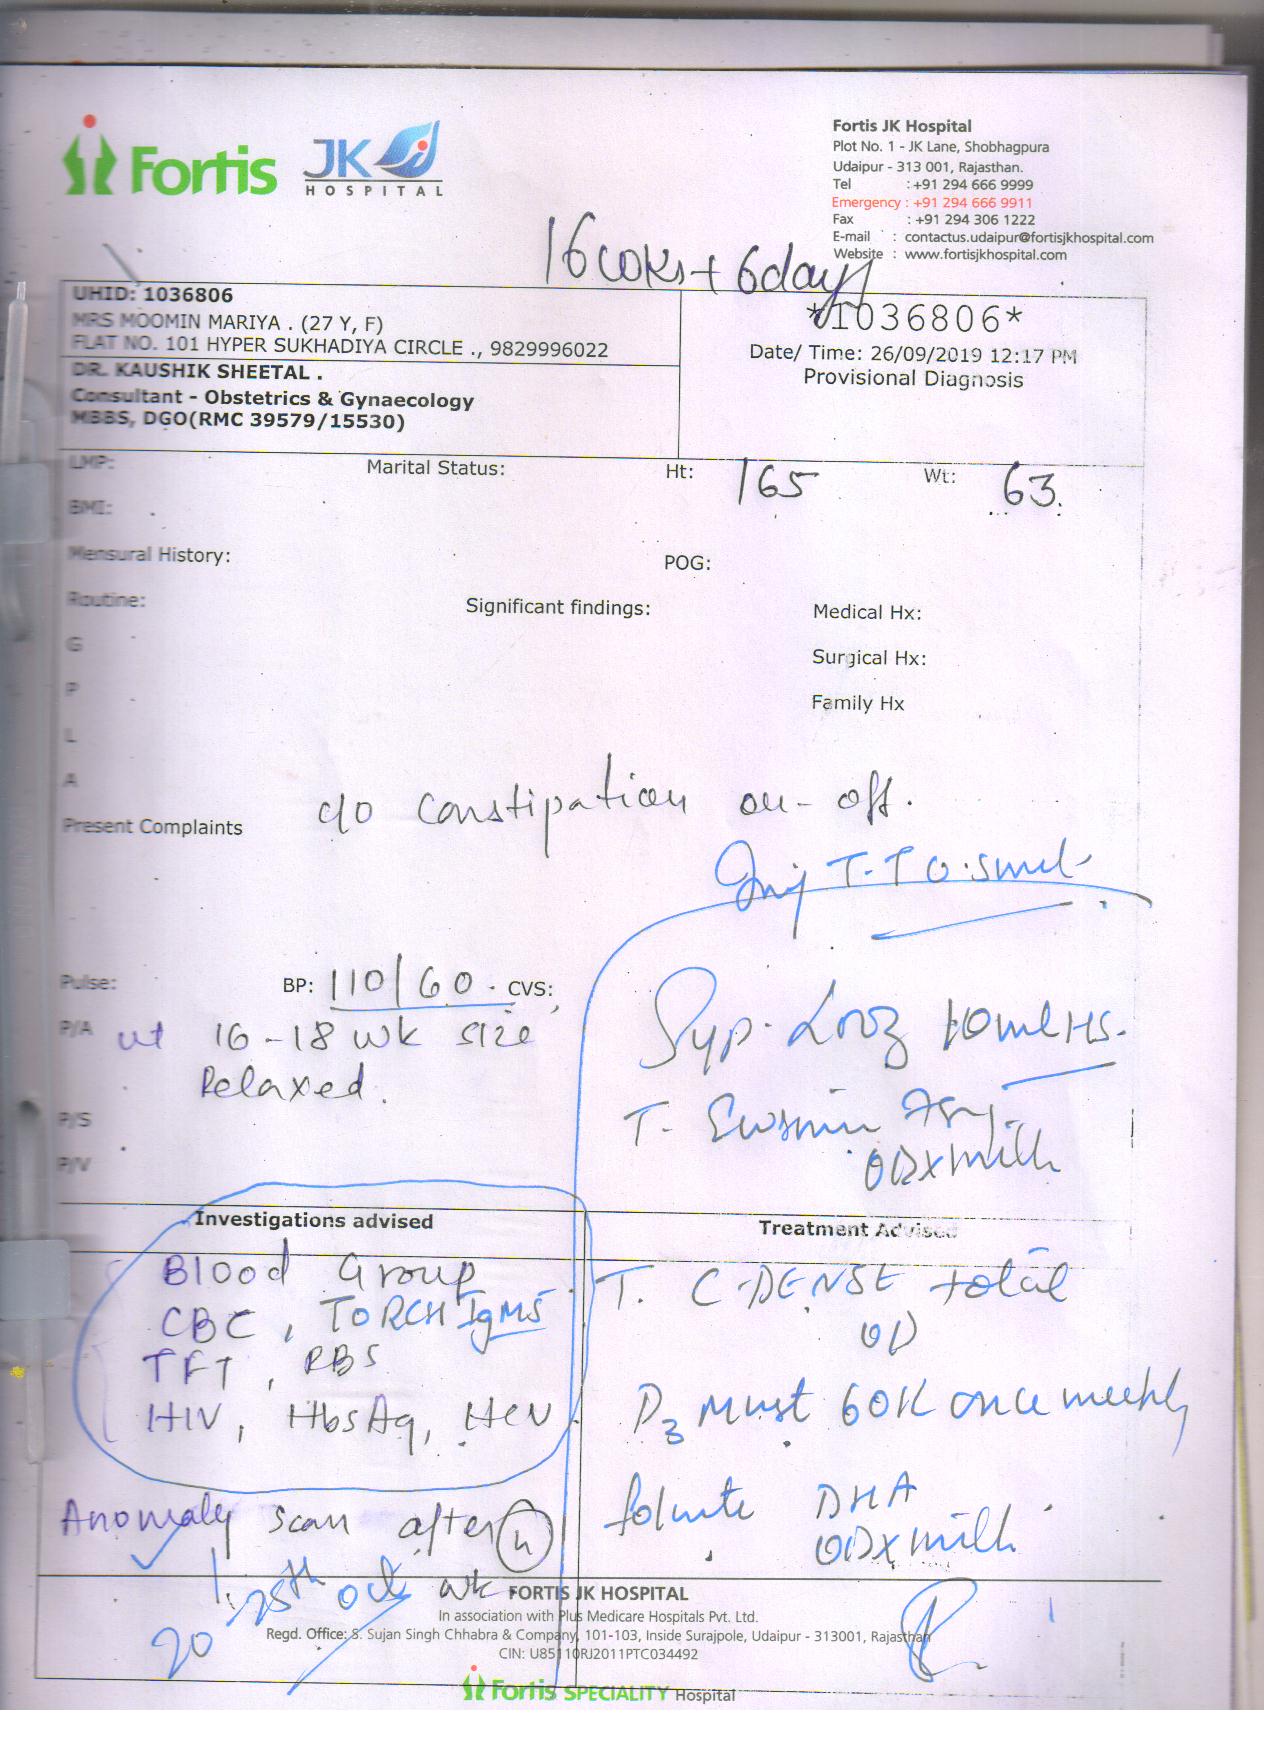 Fortis JK HOSPITAL
Fortis JK Hospital
Plot No. 1 - JK Lane, Shobhagpura
Udaipur - 313 001, Rajasthan.
Tel : +91 294 666 9999
Emergency : +91 294 666 9911
Fax : +91 294 306 1222
E-mail : contactus.udaipur@fortisjkhospital.com
Website : www.fortisjkhospital.com
16 wks + 6 day
UHID: 1036806
MRS MOOMIN MARIYA . (27 Y, F)
FLAT NO. 101 HYPER SUKHADIYA CIRCLE ., 9829996022
DR. KAUSHIK SHEETAL .
Consultant - Obstetrics & Gynaecology
MBBS, DGO(RMC 39579/15530)
*1036806*
Date/ Time: 26/09/2019 12:17 PM
Provisional Diagnosis
LMP: Marital Status: Ht: 165 Wt: 63.
BMI:
Mensural History: POG:
Routine: Significant findings: Medical Hx:
G
Surgical Hx:
P
Family Hx
L
A
Present Complaints c/o constipation on-off.
Inj T.T 0.5ml
Pulse: BP: 110/60 CVS:
P/A ut 16-18 wk size
Relaxed.
Syp. 10ml HS.
P/S
T.
OD x milk
P/V
Investigations advised
Blood Group
CBC, TORCH IgMs
TFT, RBS
HIV, HbsAg, HCV
Anomaly scan after
25th oct wk
20
Treatment Advised
T. C-DENSE total
OD
D3 Must 60K once weekly
DHA
OD x milk
FORTIS JK HOSPITAL
In association with Plus Medicare Hospitals Pvt. Ltd.
Regd. Office: S. Sujan Singh Chhabra & Company, 101-103, Inside Surajpole, Udaipur - 313001, Rajasthan
CIN: U85110RJ2011PTC034492
Fortis SPECIALITY Hospital